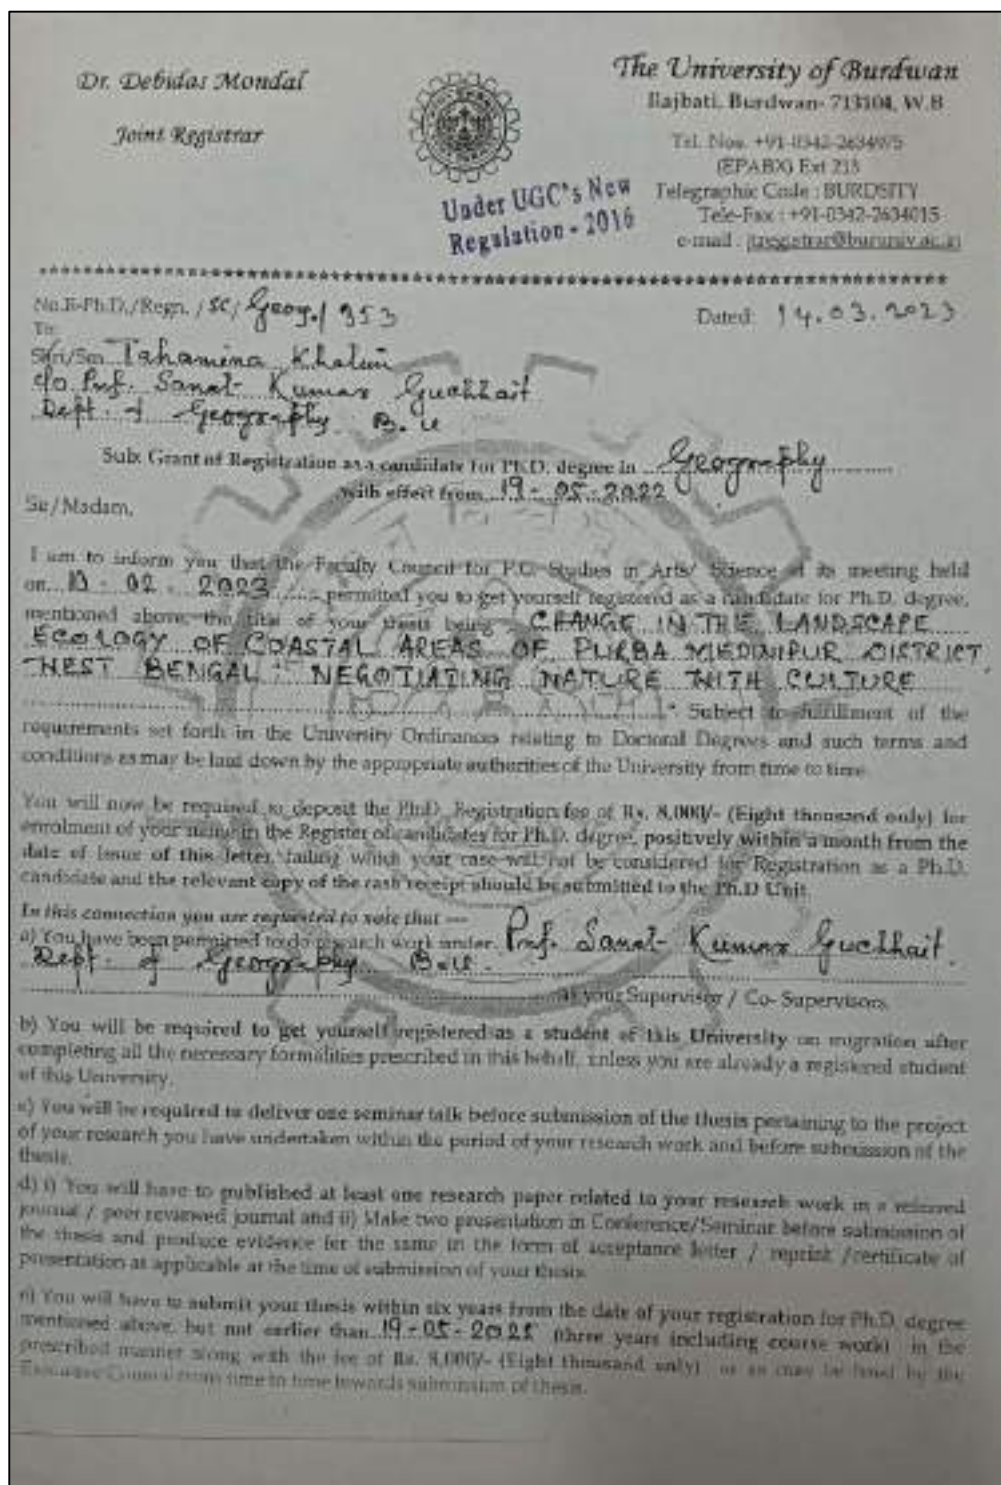 Dr. Debidas Mondal
Joint Registrar
The University of Burdwan
Rajbati, Burdwan- 713104, W.B
Tel. Nos. +91-0342-2634975
(EPABX) Ext 213
Telegraphic Code : BURDSITY
Tele-Fax : +91-0342-2634015
e-mail : jtregistrar@buruniv.ac.in
Under UGC's New
Regulation - 2016
No.R-Ph.D./Regn. / SC/ Geog./ 353
Dated: 14.03.2023
To
Shri/Sm Tahamina Khatun
c/o Prof. Sanat Kumar Guchhait
Dept. of Geography. B.U
Sub: Grant of Registration as a candidate for Ph.D. degree in Geography
with effect from 19-05-2022
Sir/Madam,
I am to inform you that the Faculty Council for P.G. Studies in Arts/ Science at its meeting held
on 02 . 2023 permitted you to get yourself registered as a candidate for Ph.D. degree,
mentioned above, the title of your thesis being " CHANGE IN THE LANDSCAPE
ECOLOGY OF COASTAL AREAS OF PURBA MEDINIPUR DISTRICT,
WEST BENGAL : NEGOTIATING NATURE WITH CULTURE
" Subject to fulfillment of the
requirements set forth in the University Ordinances relating to Doctoral Degrees and such terms and
conditions as may be laid down by the appropriate authorities of the University from time to time.
You will now be required to deposit the Ph.D. Registration fee of Rs. 8,000/- (Eight thousand only) for
enrolment of your name in the Register of candidates for Ph.D. degree, positively within a month from the
date of issue of this letter, failing which your case will not be considered for Registration as a Ph.D.
candidate and the relevant copy of the cash receipt should be submitted to the Ph.D Unit.
In this connection you are requested to note that ---
a) You have been permitted to do research work under Prof. Sanat Kumar Guchhait.
Dept. of Geography B.U.
as your Supervisor / Co- Supervisors.
b) You will be required to get yourself registered as a student of this University on migration after
completing all the necessary formalities prescribed in this behalf, unless you are already a registered student
of this University.
c) You will be required to deliver one seminar talk before submission of the thesis pertaining to the project
of your research you have undertaken within the period of your research work and before submission of the
thesis.
d) i) You will have to published at least one research paper related to your research work in a refereed
journal / peer reviewed journal and ii) Make two presentation in Conference/Seminar before submission of
the thesis and produce evidence for the same in the form of acceptance letter / reprint /certificate of
presentation as applicable at the time of submission of your thesis.
e) You will have to submit your thesis within six years from the date of your registration for Ph.D. degree
mentioned above, but not earlier than 19-05-2025 (three years including course work) in the
prescribed manner along with the fee of Rs. 8,000/- (Eight thousand only) or as may be fixed by the
Executive Council from time to time towards submission of thesis.